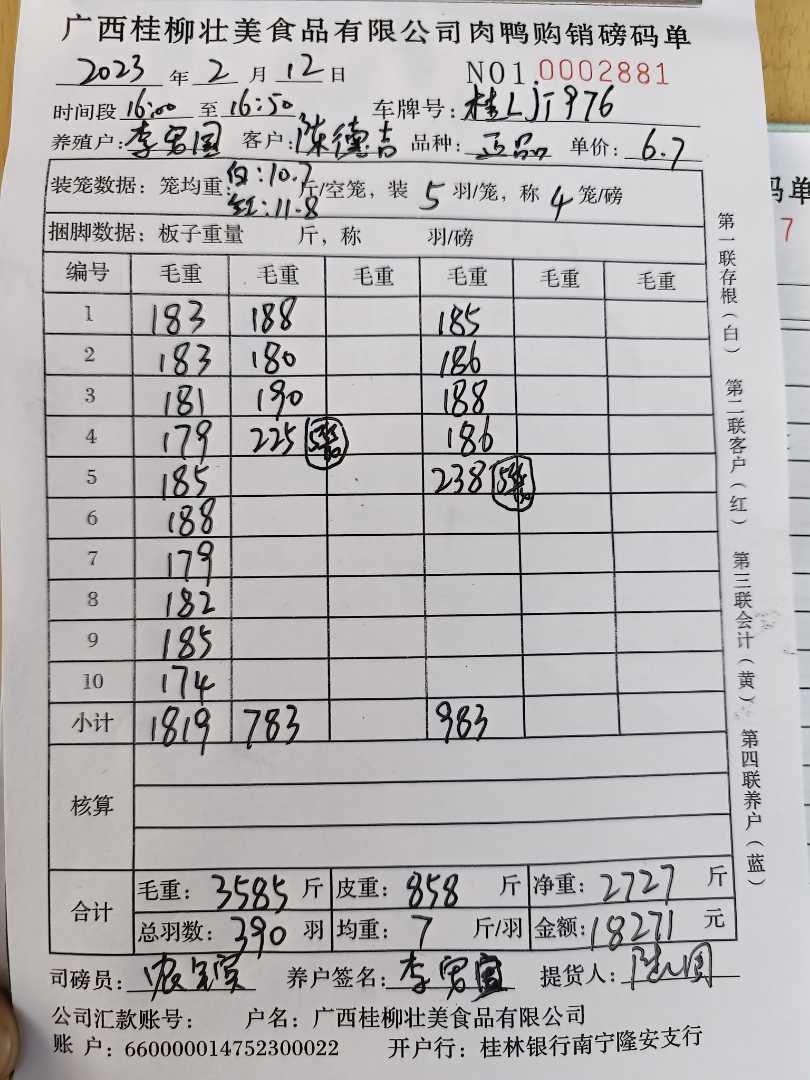 广西桂柳壮美食品有限公司肉鸭购销磅码单
2023 年 2 月 12 日 NO1.0002881
时间段 16:00 至 16:50 车牌号: 桂LJT976
养殖户: 李男国 客户: 陈德吉 品种: 正品 单价: 6.7
装笼数据: 笼均重: 白:10.7 红:11.8 斤/空笼, 装 5 羽/笼, 称 4 笼/磅
捆脚数据: 板子重量 斤, 称 羽/磅
编号 毛重 毛重 毛重 毛重 毛重 毛重
1 183 188 185
2 183 180 186
3 181 190 188
4 179 225 186
5 185 238
6 188
7 179
8 182
9 185
10 174
小计 1819 783 983
核算
合计
毛重: 3585 斤 皮重: 858 斤 净重: 2727 斤
总羽数: 390 羽 均重: 7 斤/羽 金额: 18271 元
司磅员: 养户签名: 李男国 提货人:
公司汇款账号: 户名: 广西桂柳壮美食品有限公司
账 户: 660000014752300022 开户行: 桂林银行南宁隆安支行
第一联存根(白) 第二联客户(红) 第三联会计(黄) 第四联养户(蓝)
码单
7